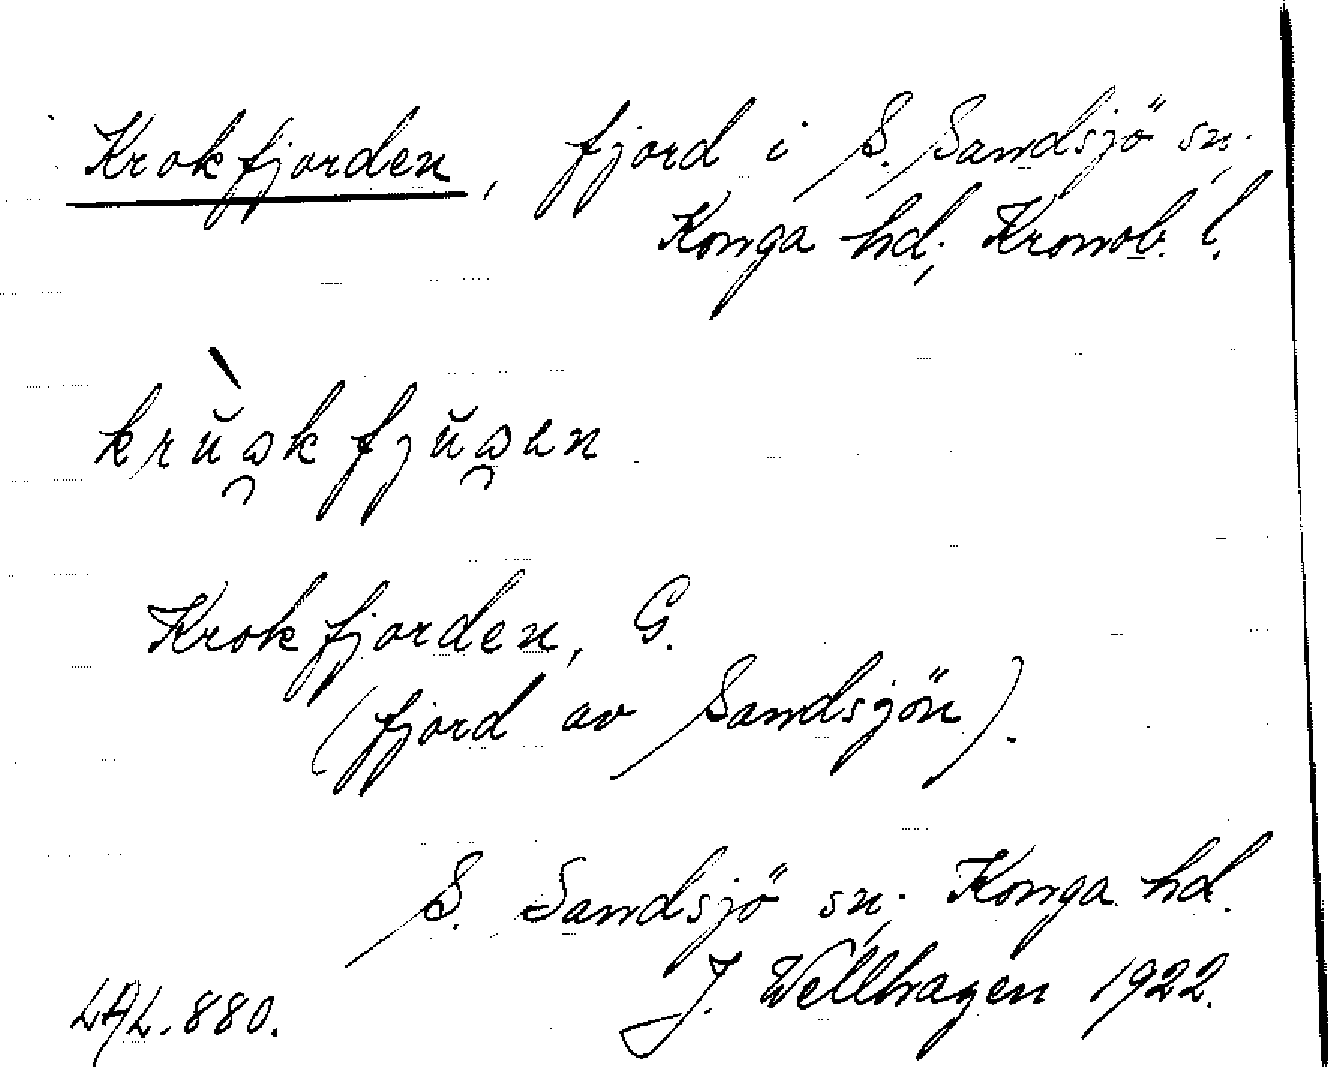 Krokfjorden, fjord i S. Sandsjö sn.,
Konga hd., Kronob. l.
krŭ̀ə̯kfjŭə̯en
Krokfjorden, G.
(fjord av Sandsjön).
S. Sandsjö sn., Konga hd.
LAL. 880. J. Wellhagen 1922.